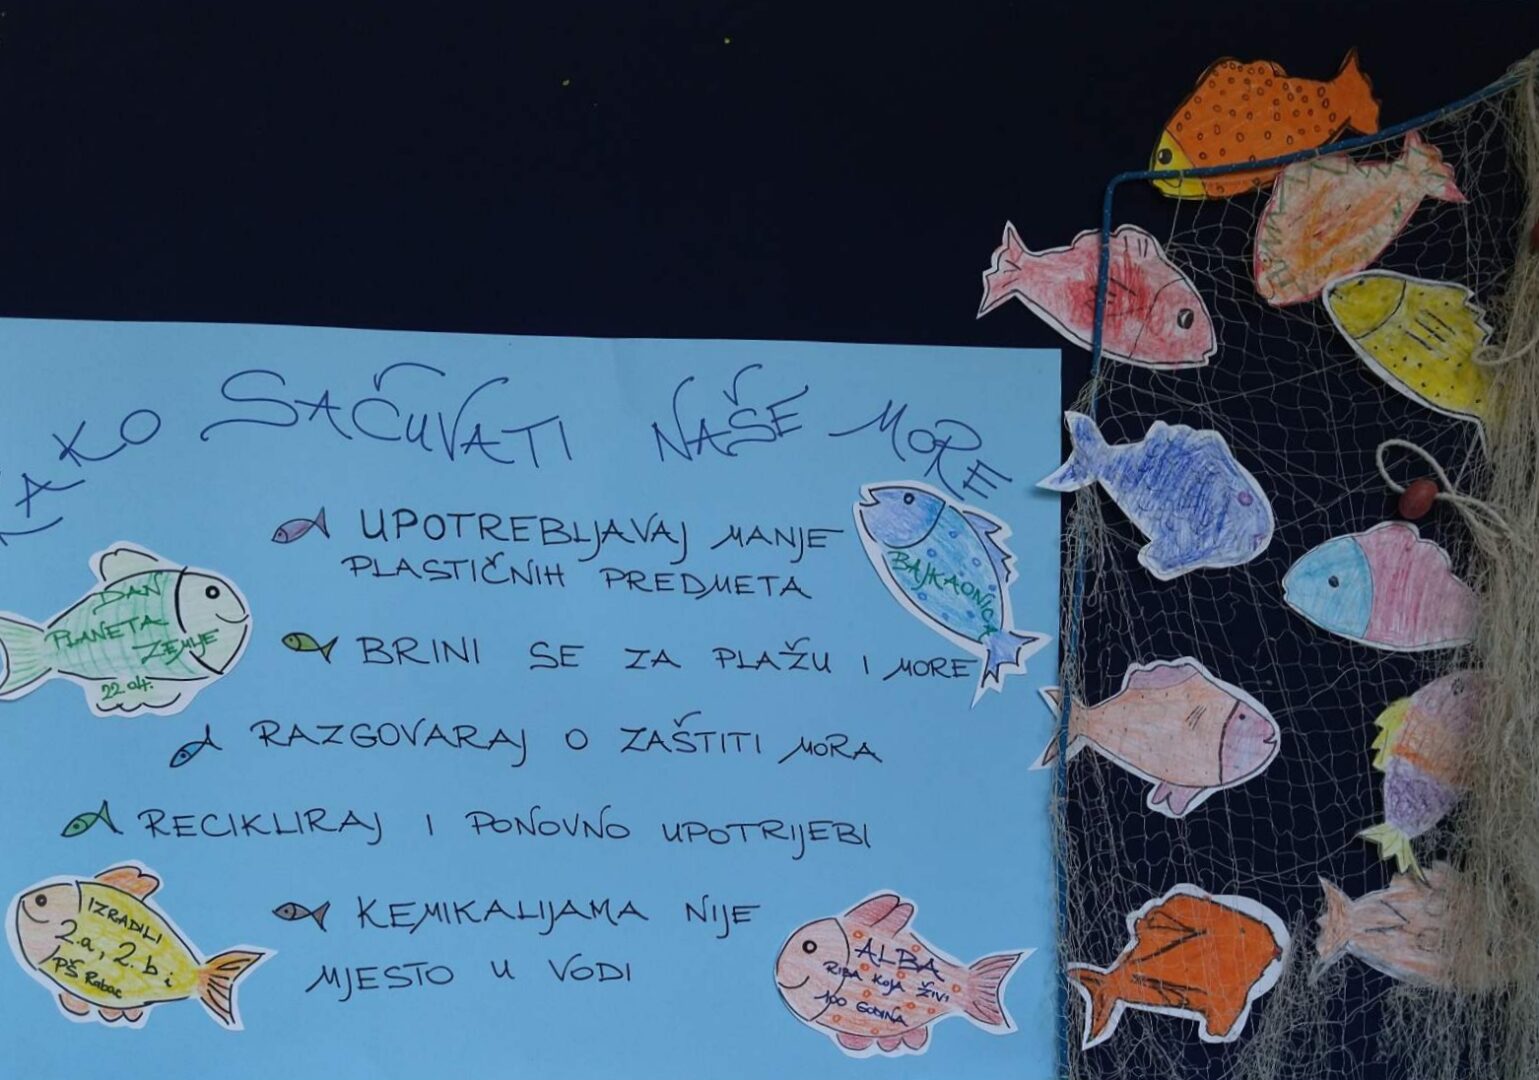 KAKO SAČUVATI NAŠE MORE
UPOTREBLJAVAJ MANJE
PLASTIČNIH PREDMETA
BAJKAONICA
DAN
PLANETA
ZEMLJE
22.04.
BRINI SE ZA PLAŽU I MORE
RAZGOVARAJ O ZAŠTITI MORA
RECIKLIRAJ I PONOVNO UPOTRIJEBI
IZRADILI
2.a, 2.b i
PŠ Rabac
KEMIKALIJAMA NIJE
MJESTO U VODI
ALBA
RIBA KOJA ŽIVI
100 GODINA